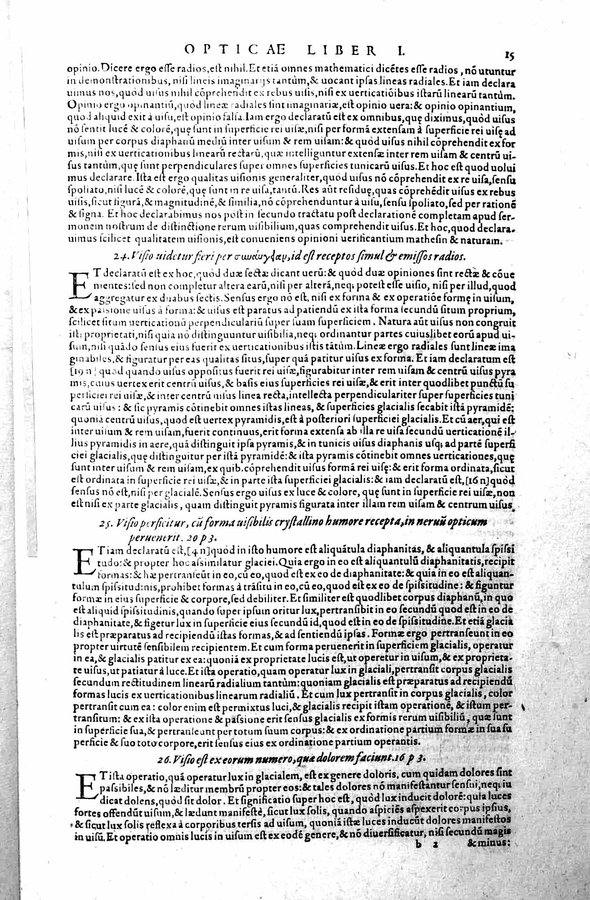 OPTICAE LIBER I. 15
opinio. Dicere ergo esse radios, est nihil. Et etiā omnes mathematici dicētes esse radios, nō utuntur
in demonstrationibus, nisi lineis imaginarijs tantùm, & uocant ipsas lineas radiales. Et iam declara
uimus nos, quòd uisus nihil cōprehendit ex rebus uisis, nisi ex uerticatiōibus istarū linearū tantùm.
Opinio ergo opinantiū, quòd lineæ radiales sint imaginariæ, est opinio uera: & opinio opinantium,
quòd aliquid exit à uisu, est opinio falsa. Iam ergo declaratū est ex omnibus, quę diximus, quòd uisus
nō sentit lucē & colorē, quę sunt in superficie rei uisæ, nisi per formā extensam à superficie rei uisę ad
uisum per corpus diaphanū mediū inter uisum & rem uisam: & quòd uisus nihil cōprehendit ex for
mis, nisi ex uerticationibus linearū rectarū, quæ intelliguntur extensæ inter rem uisam & centrū ui-
sus tantùm, quę sunt perpendiculares super omnes superficies tunicarū uisus. Et hoc est quod uolui
mus declarare. Ista est ergo qualitas uisionis generaliter, quòd uisus nō cōprehendit ex re uisa, sensu
spoliato, nisi lucē & colorē, quę sunt in re uisa, tantū. Res aūt residuę, quas cōprehēdit uisus ex rebus
uisis, sicut figurā, & magnitudinē, & similia, nō cōprehenduntur à uisu, sensu spoliato, sed per rationē
& signa. Et hoc declarabimus nos post in secundo tractatu post declarationē completam apud ser-
monem nostrum de distinctione rerum uisibilium, quas comprehendit uisus. Et hoc, quod declara-
uimus scilicet qualitatem uisionis, est conueniens opinioni uerificantium mathesin & naturam.
24. Visio uidetur fieri per συναύγειαν, id est receptos simul & emissos radios.
ET declaratū est ex hoc, quòd duæ sectæ dicant uerū: & quòd duæ opiniones sint rectæ & cōue
nientes: sed non completur altera earū, nisi per alterā, neq; potest esse uisio, nisi per illud, quod
aggregatur ex duabus sectis. Sensus ergo nō est, nisi ex forma & ex operatiōe formę in uisum,
& ex passione uisus à forma: & uisus est paratus ad patiendū ex ista forma secundū situm proprium,
scilicet situm uerticationū perpendiculariū super suam superficiem. Natura aūt uisus non congruit
isti proprietati, nisi quia nō distinguuntur uisibilia, neq; ordinantur partes cuiuslibet eorū apud ui-
sum, nisi quādo sensus eius fuerit ex uerticationibus istis tātùm. Lineæ ergo radiales sunt lineæ ima
ginabiles, & figuratur per eas qualitas situs, super quā patitur uisus ex forma. Et iam declaratum est
[19 n] quòd quando uisus oppositus fuerit rei uisæ, figurabitur inter rem uisam & centrū uisus pyra
mis, cuius uertex erit centrū uisus, & basis eius superficies rei uisæ, & erit inter quodlibet punctū su
perficiei rei uisæ, & inter centrū uisus linea recta, intellecta perpendiculariter super superficies tuni
carū uisus: & sic pyramis cōtinebit omnes istas lineas, & superficies glacialis secabit istā pyramidē:
quonia centrū uisus, quod est uertex pyramidis, est à posteriori superficiei glacialis. Et cū aer, qui est
inter uisum & rem uisam, fuerit continuus, erit forma extensa ab illa re uisa secundū uerticationē il-
lius pyramidis in aere, quā distinguit ipsa pyramis, & in tunicis uisus diaphanis usq; ad partē superfi
ciei glacialis, que distinguitur per istā pyramidē: & ista pyramis cōtinebit omnes uerticationes, quę
sunt inter uisum & rem uisam, ex quib. cōprehendit uisus formā rei uisę: & erit forma ordinata, sicut
est ordinata in superficie rei uisæ, & in parte ista superficiei glacialis: & iam declaratū est, [16 n] quòd
sensus nō est, nisi per glacialē. Sensus ergo uisus ex luce & colore, quę sunt in superficie rei uisæ, non
est nisi ex parte glacialis, quam distinguit pyramis figurata inter illam rem uisam & centrum uisus.
25. Visio perficitur, cū forma uisibilis crystallino humore recepta, in neruū opticum
peruenerit. 20 p 3.
ET iam declaratū est, [4 n] quòd in isto humore est aliquātula diaphanitas, & aliquantula spissi
tudo: & propter hoc assimilatur glaciei. Quia ergo in eo est aliquantulū diaphanitatis, recipit
formas: & hæ pertranseūt in eo, cū eo, quod est ex eo de diaphanitate: & quia in eo est aliquan-
tulum spissitudinis, prohibet formas à trāsitu in eo, cū eo, quod est ex eo de spissitudine: & figuntur
formæ in eius superficie & corpore, sed debiliter. Et similiter est quodlibet corpus diaphanū, in quo
est aliquid spissitudinis, quando super ipsum oritur lux, pertransibit in eo secundū quod est in eo de
diaphanitate, & figetur lux in superficie eius secundū id, quod est in eo de spissitudine. Et etiā glacia
lis est præparatus ad recipiendū istas formas, & ad sentiendū ipsas. Formæ ergo pertranseunt in eo
propter uirtutē sensibilem recipientem. Et cum forma peruenerit in superficiem glacialis, operatur
in ea, & glacialis patitur ex ea: quoniā ex proprietate lucis est, ut operetur in uisum, & ex proprieta-
te uisus, ut patiatur à luce. Et ista operatio, quam operatur lux in glaciali, pertransit corpus glacialis
secundum rectitudinem linearū radialium tantùm: quoniam glacialis est præparatus ad recipiendū
formas lucis ex uerticationibus linearum radialiū. Et cum lux pertransit in corpus glacialis, color
pertransit cum ea: color enim est permixtus luci, & glacialis recipit istam operationē, & istum per-
transitum: & ex ista operatione & passione erit sensus glacialis ex formis rerum uisibiliū, quæ sunt
in superficie sua, & pertranseunt per totum suum corpus: & ex ordinatione partium formæ in sua su
perficie & suo toto corpore, erit sensus eius ex ordinatione partium operantis.
26. Visio est ex eorum numero, quæ dolorem faciunt. 16 p 3.
ET ista operatio, quā operatur lux in glacialem, est ex genere doloris, cum quidam dolores sint
passibiles, & nō læditur membrū propter eos: & tales dolores nō manifestantur sensui, neq; iu
dicat dolens, quòd sit dolor. Et significatio super hoc est, quòd lux inducit dolorē: quia luces
fortes offendūt uisum, & lædunt manifestè, sicut lux solis, quando aspiciēs aspexerit corpus ipsius,
& sicut lux solis reflexa à corporibus tersis ad uisum, quoniā istæ luces inducūt dolores manifestos
in uisū. Et operatio omnis lucis in uisum est ex eodē genere, & nō diuersificatur, nisi secundū magis
b 2 & minus: